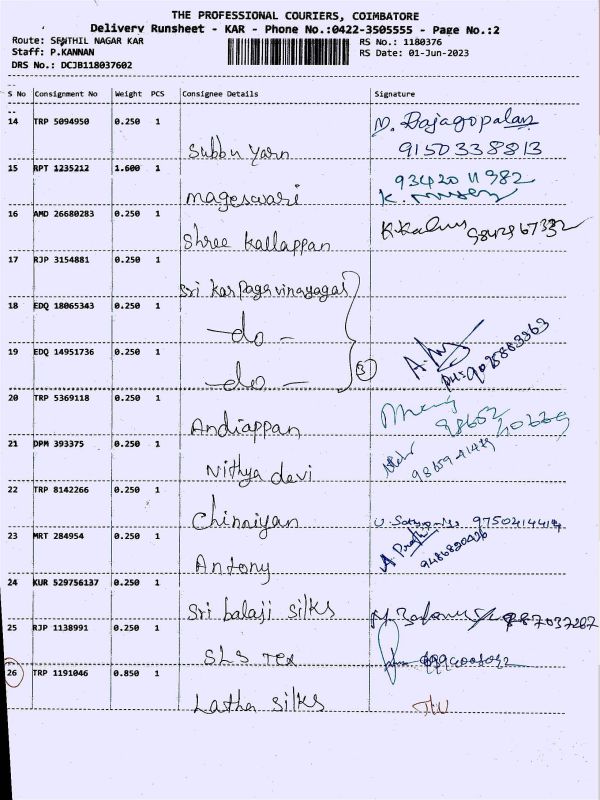 THE PROFESSIONAL COURIERS, COIMBATORE
Delivery Runsheet - KAR - Phone No.:0422-3505555 - Page No.:2
Route: SENTHIL NAGAR KAR
RS No.: 1180376
Staff: P.KANNAN
RS Date: 01-Jun-2023
DRS No.: DCJB118037602
S No Consignment No Weight PCS Consignee Details Signature
14 TRP 5094950 0.250 1
Subbu yarn
N. Rajagopalan
9150338813
15 RPT 1235212 1.600 1
mageswari
93420 11982
K.
16 AMD 26680283 0.250 1
Shree Kallappan
17 RJP 3154881 0.250 1
Sri karpagavinayagar
18 EDQ 18065343 0.250 1
-do-
19 EDQ 14951736 0.250 1
-do-
(3)
20 TRP 5369118 0.250 1
Andiappan
21 DPM 393375 0.250 1
Nithya devi
22 TRP 8142266 0.250 1
Chinniyan
9750414414
23 MRT 284954 0.250 1
Antony
24 KUR 529756137 0.250 1
Sri balaji silks
25 RJP 1138991 0.250 1
SLS Tex
26 TRP 1191046 0.850 1
Latha silks